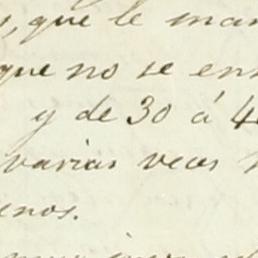 , que le man
que no se en
y de 30 á 4
varias veces
enos.